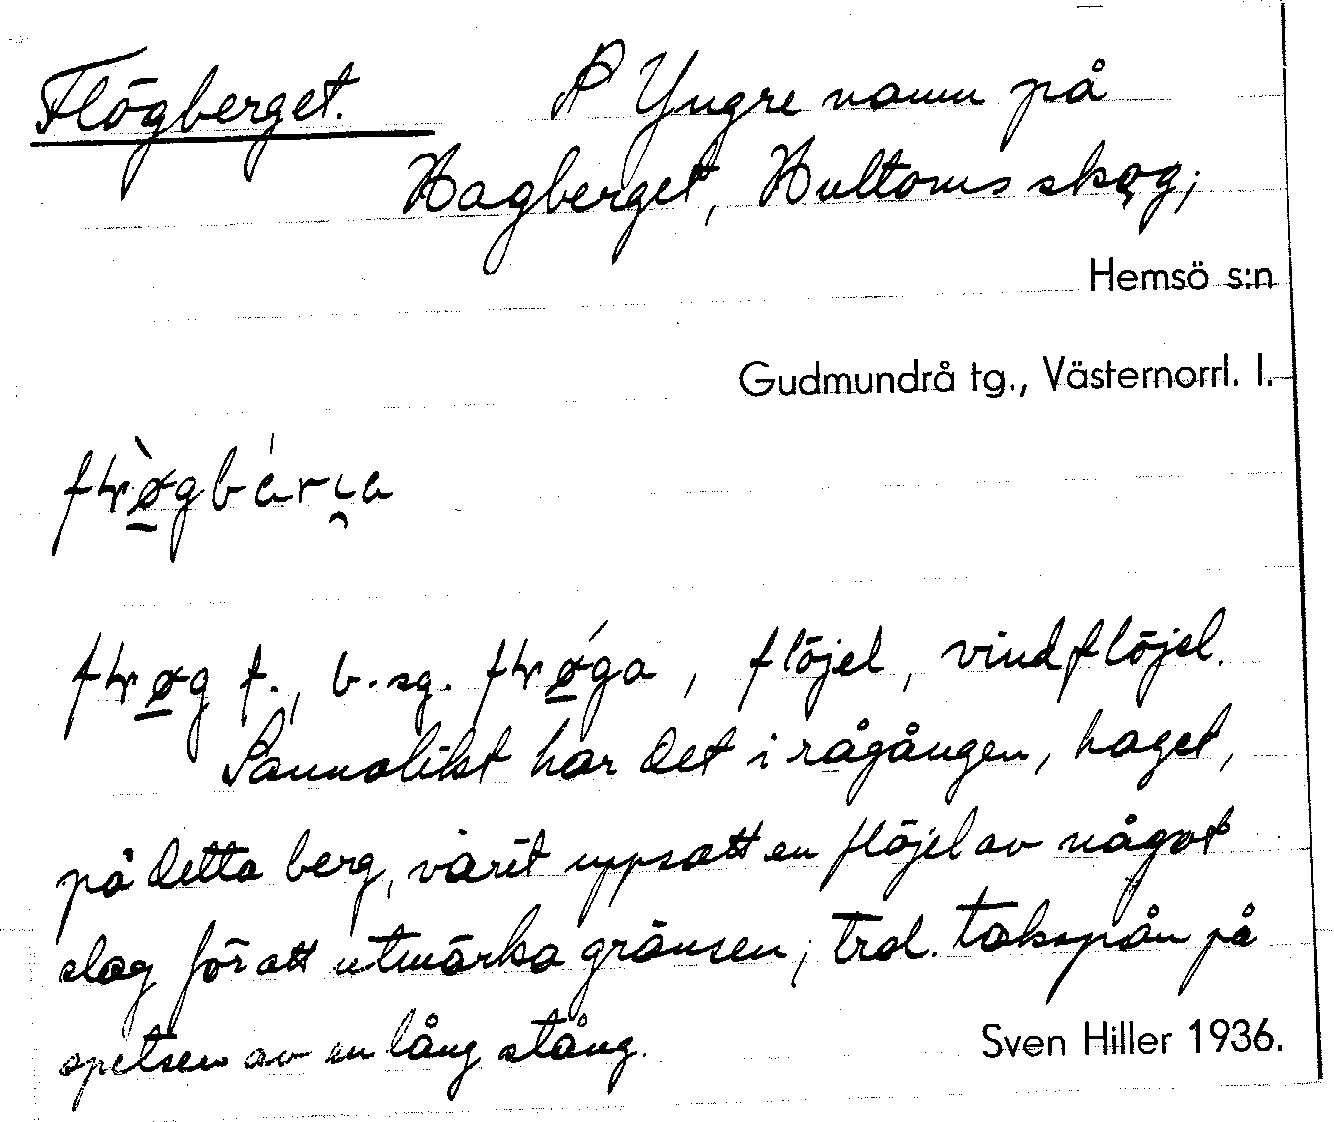 Flögberget. P Yngre namn på
Hagberget, Hultoms skog;
Hemsö s:n
Gudmundrå tg., Västernorrl. l.
f., b. sg. , flöjel, vindflöjel.
Sannolikt har det i rågången, haget,
på detta berg, varit uppsatt en flöjel av något
slag för att utmärka gränsen; trol. takspån på
spetsen av en lång stång.
Sven Hiller 1936.